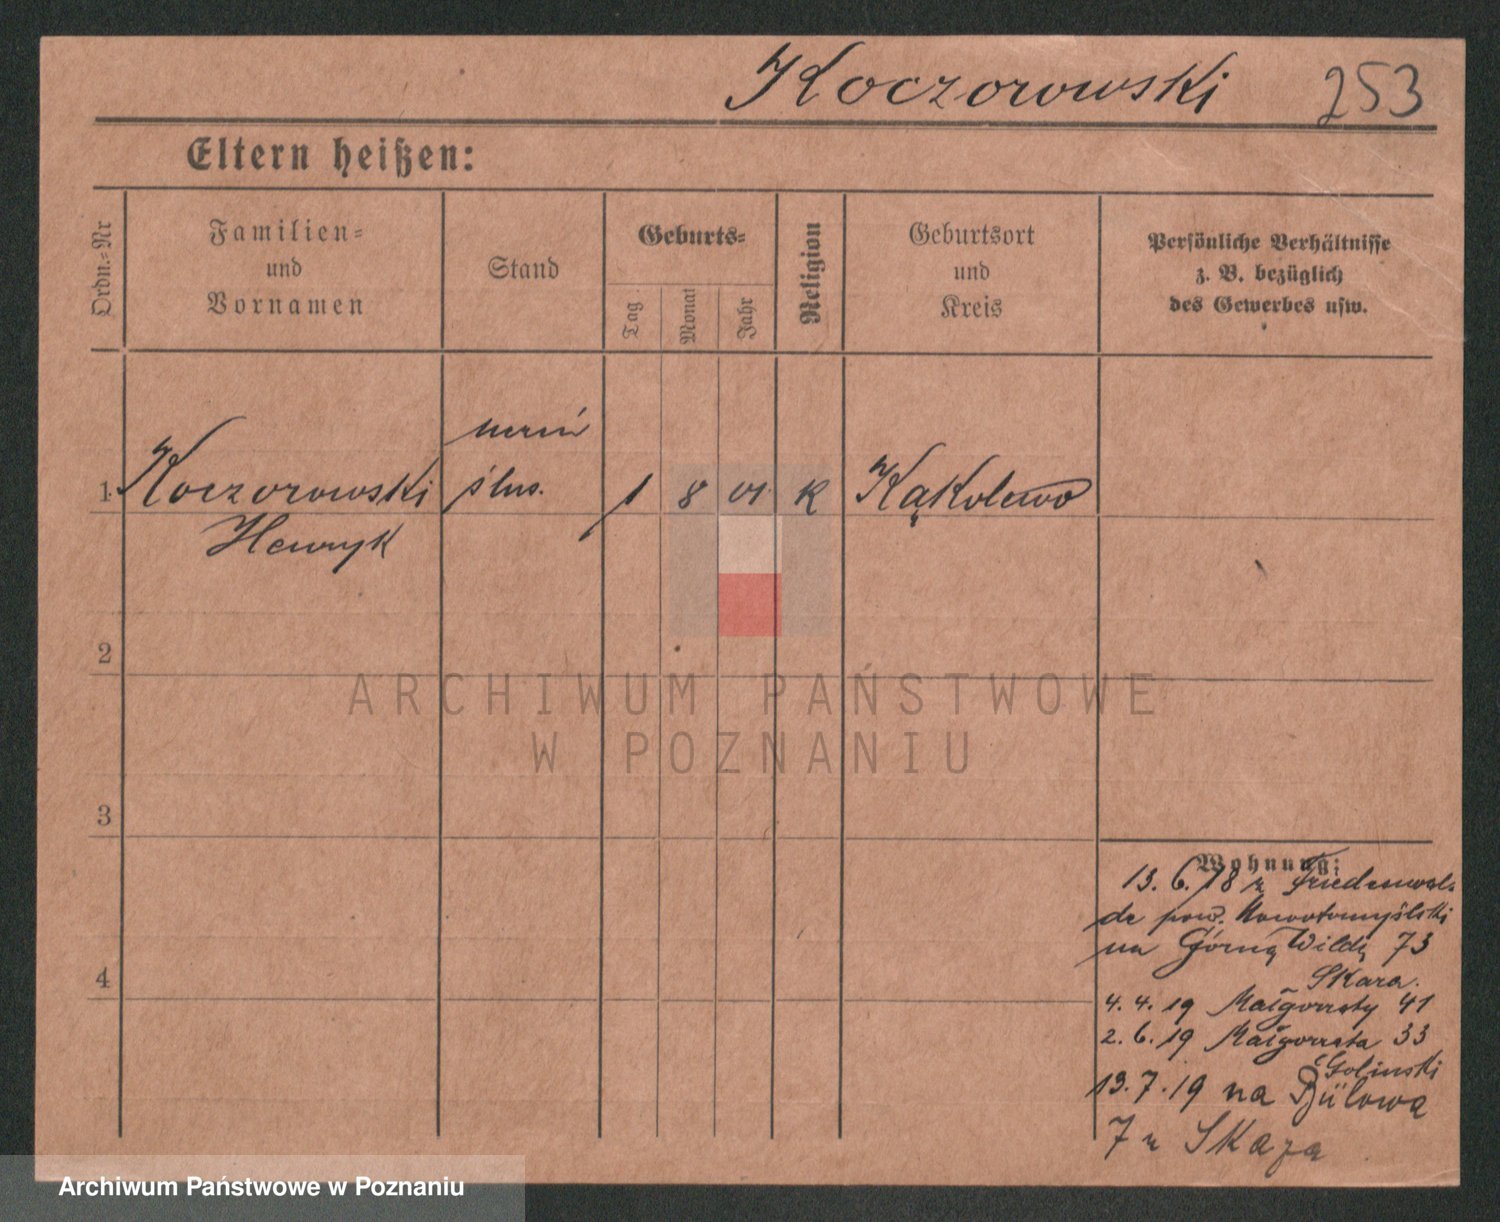 Koczorowski 253
Eltern heißen:
Ordn.=Nr
Familien=
und
Vornamen
Stand
Geburts=
Tag
Monat
Jahr
Religion
Geburtsort
und
Kreis
Persönliche Verhältnisse
z. B. bezüglich
des Gewerbes usw.
uczeń
1 Koczorowski ślus. 1 8 01 K Kąkolewo
Henryk
2
ARCHIWUM PAŃSTWOWE
W POZNANIU
3
4
Wohnung:
13. 6. 18 z Friedenwal-
de pow. Nowotomyślski
na Górną Wildę 73
Skaza.
4. 4. 19 Małgorzaty 41
2. 6. 19 Małgorzata 33
Golinski
13. 7. 19 na Bülowa
7 u Skaza
Archiwum Państwowe w Poznaniu